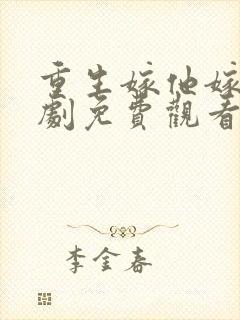 重生嫁他嫁
劇免費觀看
李金春